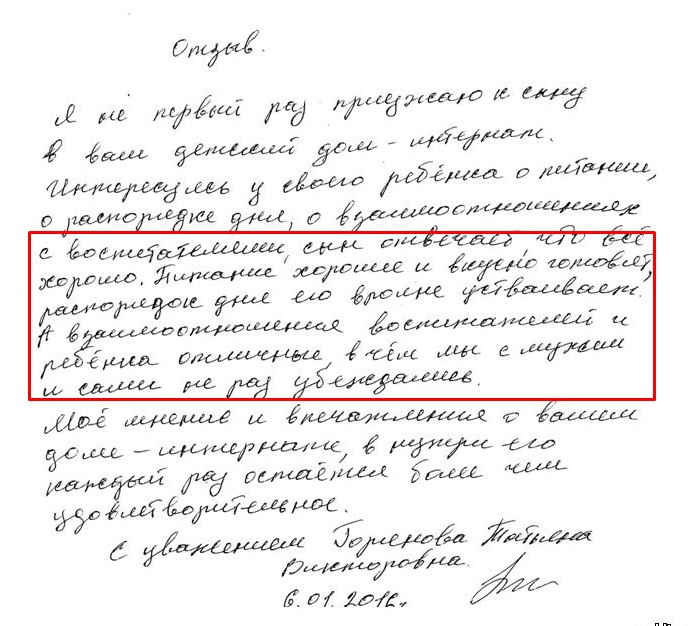 Отзыв.
Я не первый раз приезжаю к сыну
в ваш детский дом-интернат.
Интересуясь у своего ребёнка о питании,
о распорядке дня, о взаимоотношениях
с воспитателями, сын отвечает, что всё
хорошо. Питание хорошее и вкусно готовят,
распорядок дня его вполне устваивает.
А взаимоотношения воспитателей и
ребёнка отличные, в чём мы с мужем
и сами не раз убеждались.
Моё мнение и впечатления о вашем
доме-интернате, в нутри его
каждый раз остаётся более чем
удовлетворительное.
С уважением Татьяна
Викторовна.
6.01.2016г.